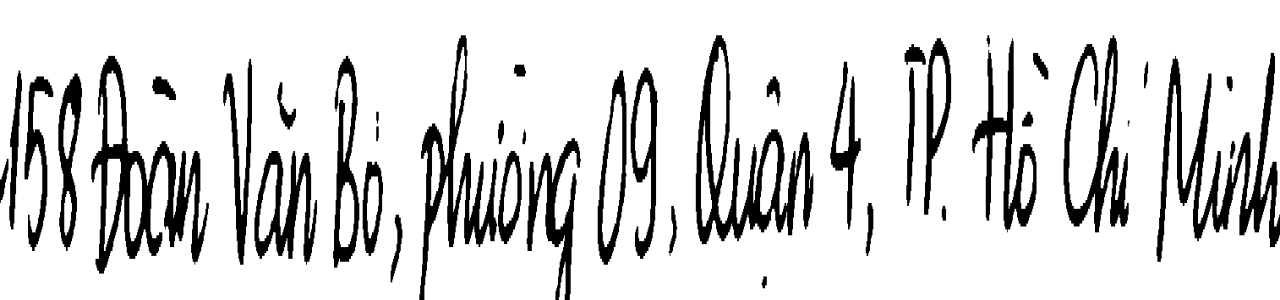 158 Đoàn Văn Bơ, phường 09, Quận 4, TP. Hồ Chí Minh